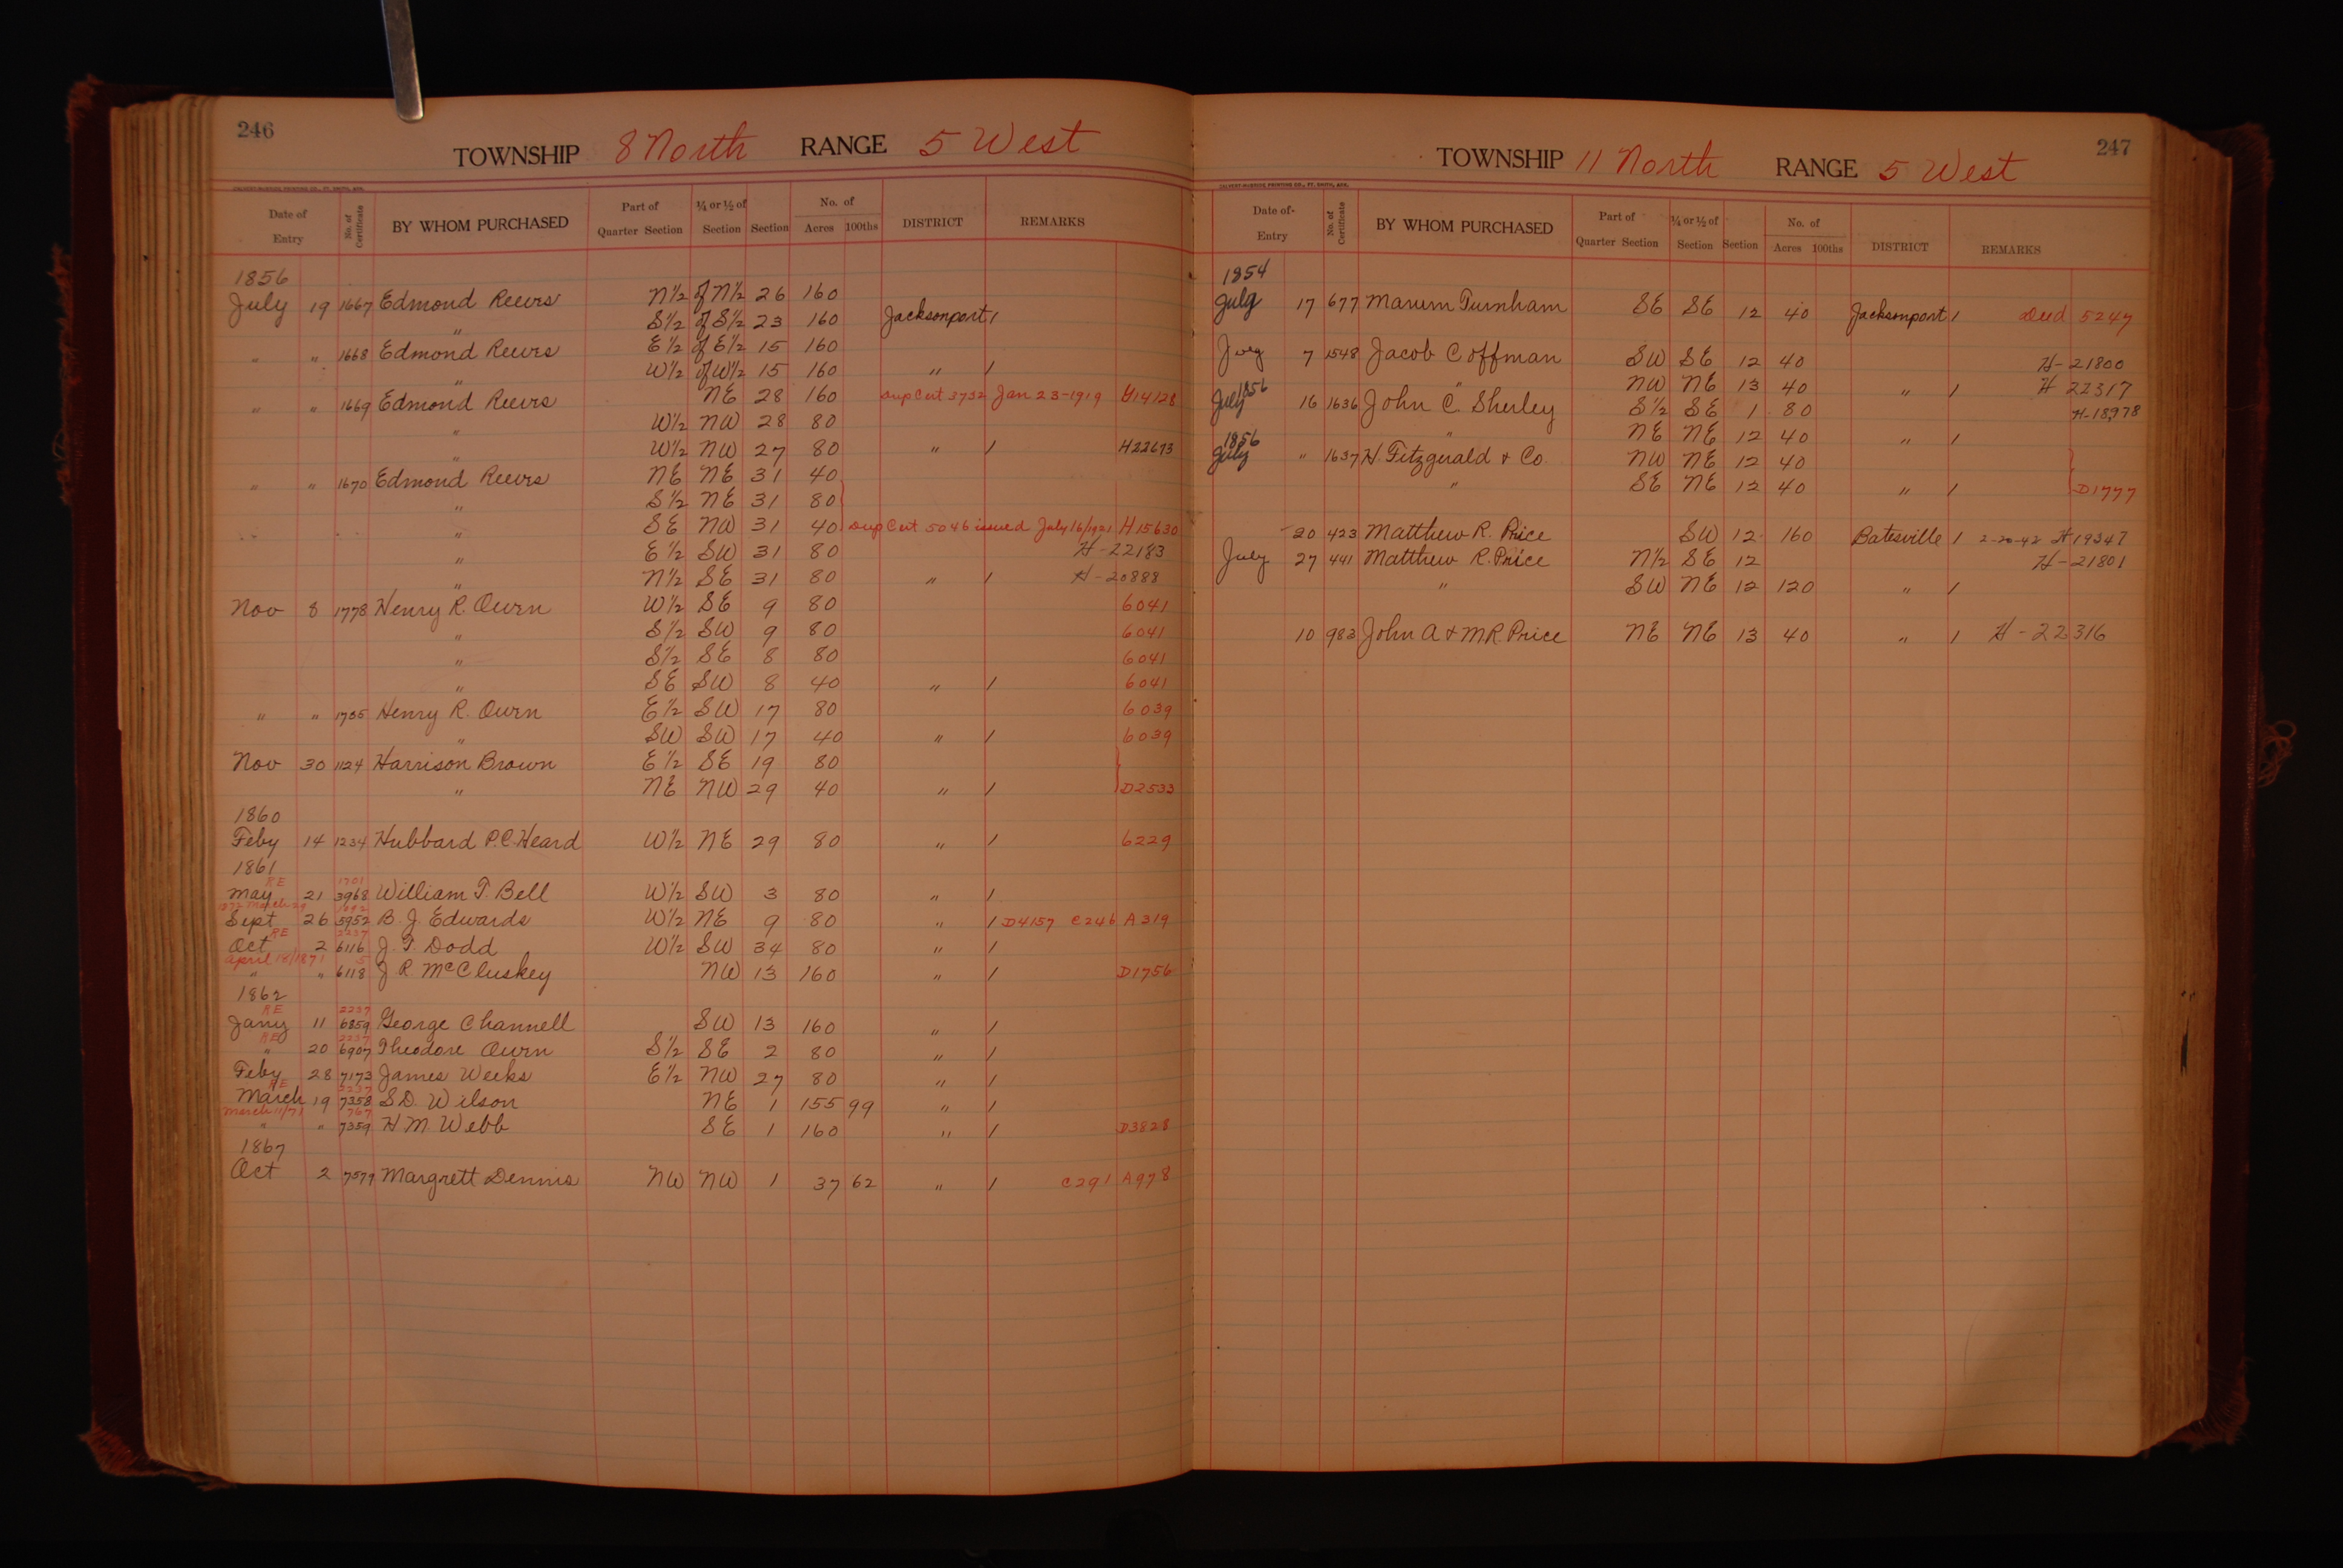 246
TOWNSHIP 8 North RANGE 5 West
CALVERT-McBRIDE PRINTING CO., FT. SMITH, ARK.
Date of Entry No. of Certificate BY WHOM PURCHASED Part of Quarter Section ¼ or ½ of Section Section No. of Acres 100ths DISTRICT REMARKS
1856
July 19 1667 Edmond Reeves N½ of N½ 26 160
" S½ of S½ 23 160 Jacksonport /
" " 1668 Edmond Reeves E½ of E½ 15 160
" W½ of W½ 15 160 " /
" " 1669 Edmond Reeves NE 28 160 Dup Cert 3732 Jan 23-1919 H14128
" W½ NW 28 80
" W½ NW 27 80 " / H22673
" " 1670 Edmond Reeves NE NE 31 40
" S½ NE 31 80
" SE NW 31 40 Dup Cert 5046 issued July 16/1921 H15630
" E½ SW 31 80 H-22183
" N½ SE 31 80 " / H-20888
Nov 8 1778 Henry R. Owen W½ SE 9 80 6041
" S½ SW 9 80 6041
" S½ SE 8 80 6041
" SE SW 8 40 " / 6041
" " 1785 Henry R. Owen E½ SW 17 80 6039
" SW SW 17 40 " / 6039
Nov 30 1124 Harrison Brown E½ SE 19 80
" NE NW 29 40 " / D2533
1860
Feby 14 1234 Hubbard P.C. Heard W½ NE 29 80 " / 6229
1861
RE 1701
May 21 3968 William T. Bell W½ SW 3 80 " /
March 29
Sept 26 5952 B. J. Edwards W½ NE 9 80 " / D4157 C246 A319
RE 2237
Oct 2 6116 J. T. Dodd W½ SW 34 80 " /
April 18/1871 5
" " 6118 J. R. McCluskey NW 13 160 " / D1756
1862
RE 2237
Jany 11 6859 George Channell SW 13 160 " /
RE 2237
" 20 6907 Theodore Owen S½ SE 2 80 " /
Feby 28 7173 James Weeks E½ NW 27 80 " /
RE 2237
March 19 7358 S.D. Wilson NE 1 155 99 " /
March 11/71 767
" " 7359 H M. Webb SE 1 160 " / D3828
1867
Oct 2 7579 Margrett Dennis NW NW 1 37 62 " / C291 A978
247
TOWNSHIP 11 North RANGE 5 West
CALVERT-McBRIDE PRINTING CO., FT. SMITH, ARK.
Date of Entry No. of Certificate BY WHOM PURCHASED Part of Quarter Section ¼ or ½ of Section Section No. of Acres 100ths DISTRICT REMARKS
1854
July 17 677 Turnham SE SE 12 40 Jacksonport / Deed 5247
7 1548 Jacob Coffman SW SE 12 40 H-21800
" NW NE 13 40 " / H 22317
1856
July 16 1636 John C. Sherley S½ SE 1 80 H-18978
" NE NE 12 40 " /
1856
July " 1637 H. Fitzgerald & Co. NW NE 12 40
" SE NE 12 40 " / D1777
20 423 Matthew R. Price SW 12 160 Batesville / 2-20-42 H19347
July 27 441 Matthew R. Price N½ SE 12 H-21801
" SW NE 12 120 " /
10 983 John A & M R. Price NE NE 13 40 " / H-22316